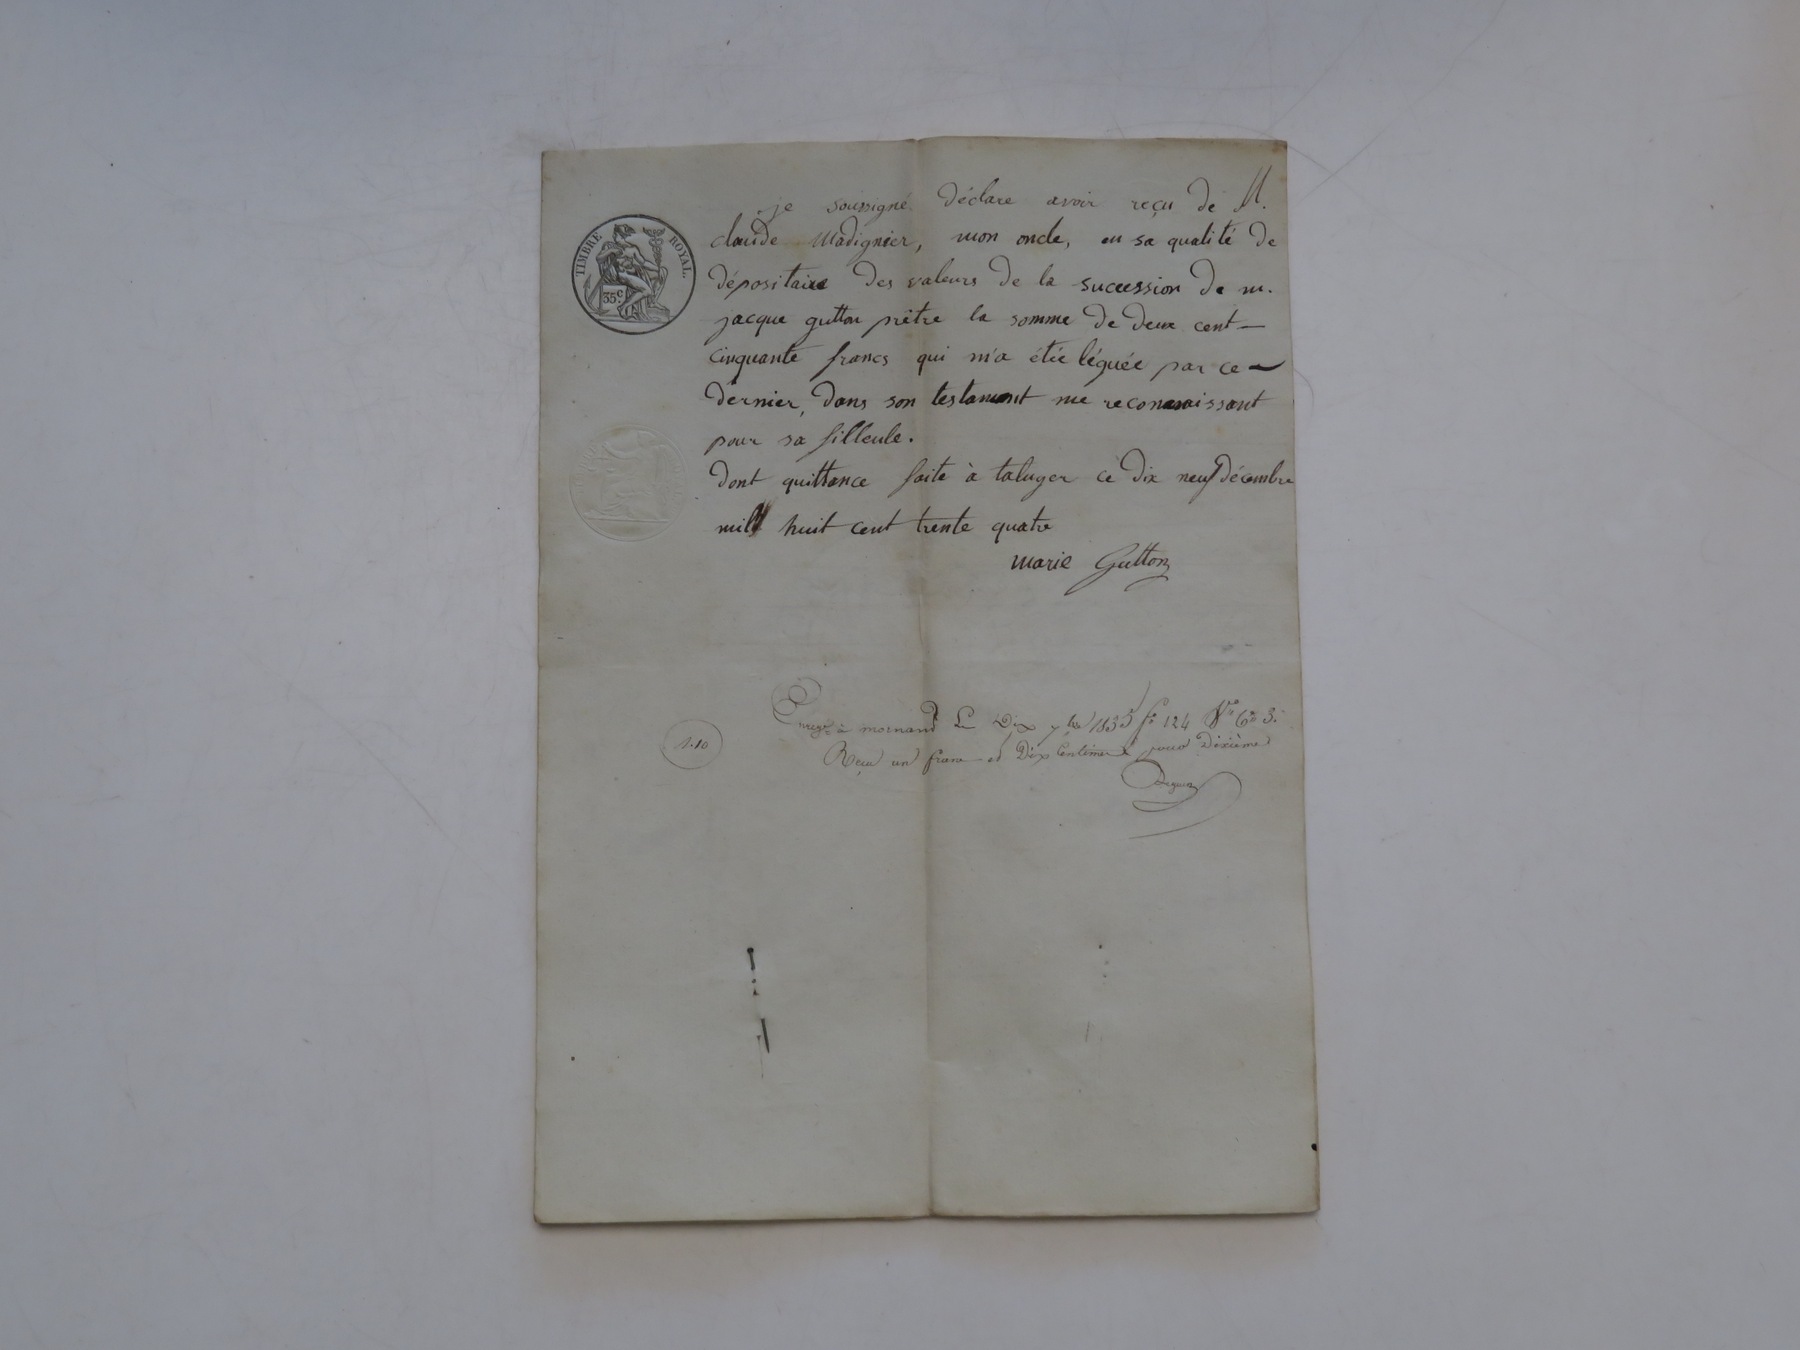 TIMBRE ROYAL
35 c.
je soussigné déclare avoir reçu de M.
claude Madignier, mon oncle, en sa qualité de
dépositaire des valeurs de la succession de m.
jacque gutton prêtre la somme de deux cent —
cinquante francs qui m'a étée léguée par ce —
dernier, dans son testament me reconnaissant
pour sa filleule.
dont quittance faite à taluyer ce dix neuf décembre
mill huit cent trente quatre
marie Gutton
Enregé à mornant Le Dix 7bre 1835 fo 124 Vo Ce 3.
1.10
Reçu un franc et Dix Centimes pour Dixième